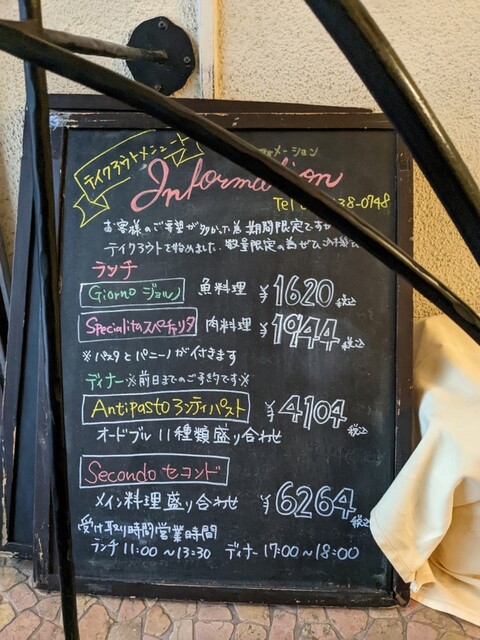 テイクアウトメニュー
フォメーション
Information
Tel 38-0748
お客様のご要望が多かった為期間限定ですが
テイクアウトを始めました。数量限定の為ぜひ
ランチ
Giorno ジョルノ 魚料理 ¥1620税込
Specialitaスペチャリタ 肉料理 ¥1944税込
※パスタとパニーノが付きます
ディナー※前日までのご予約です※
Antipasto アンティパスト ¥4104税込
オードブル11種類盛り合わせ
Secondo セコンド
メイン料理盛り合わせ ¥6264税込
受け取り時間営業時間
ランチ11:00~13:30 ディナー17:00~18:00